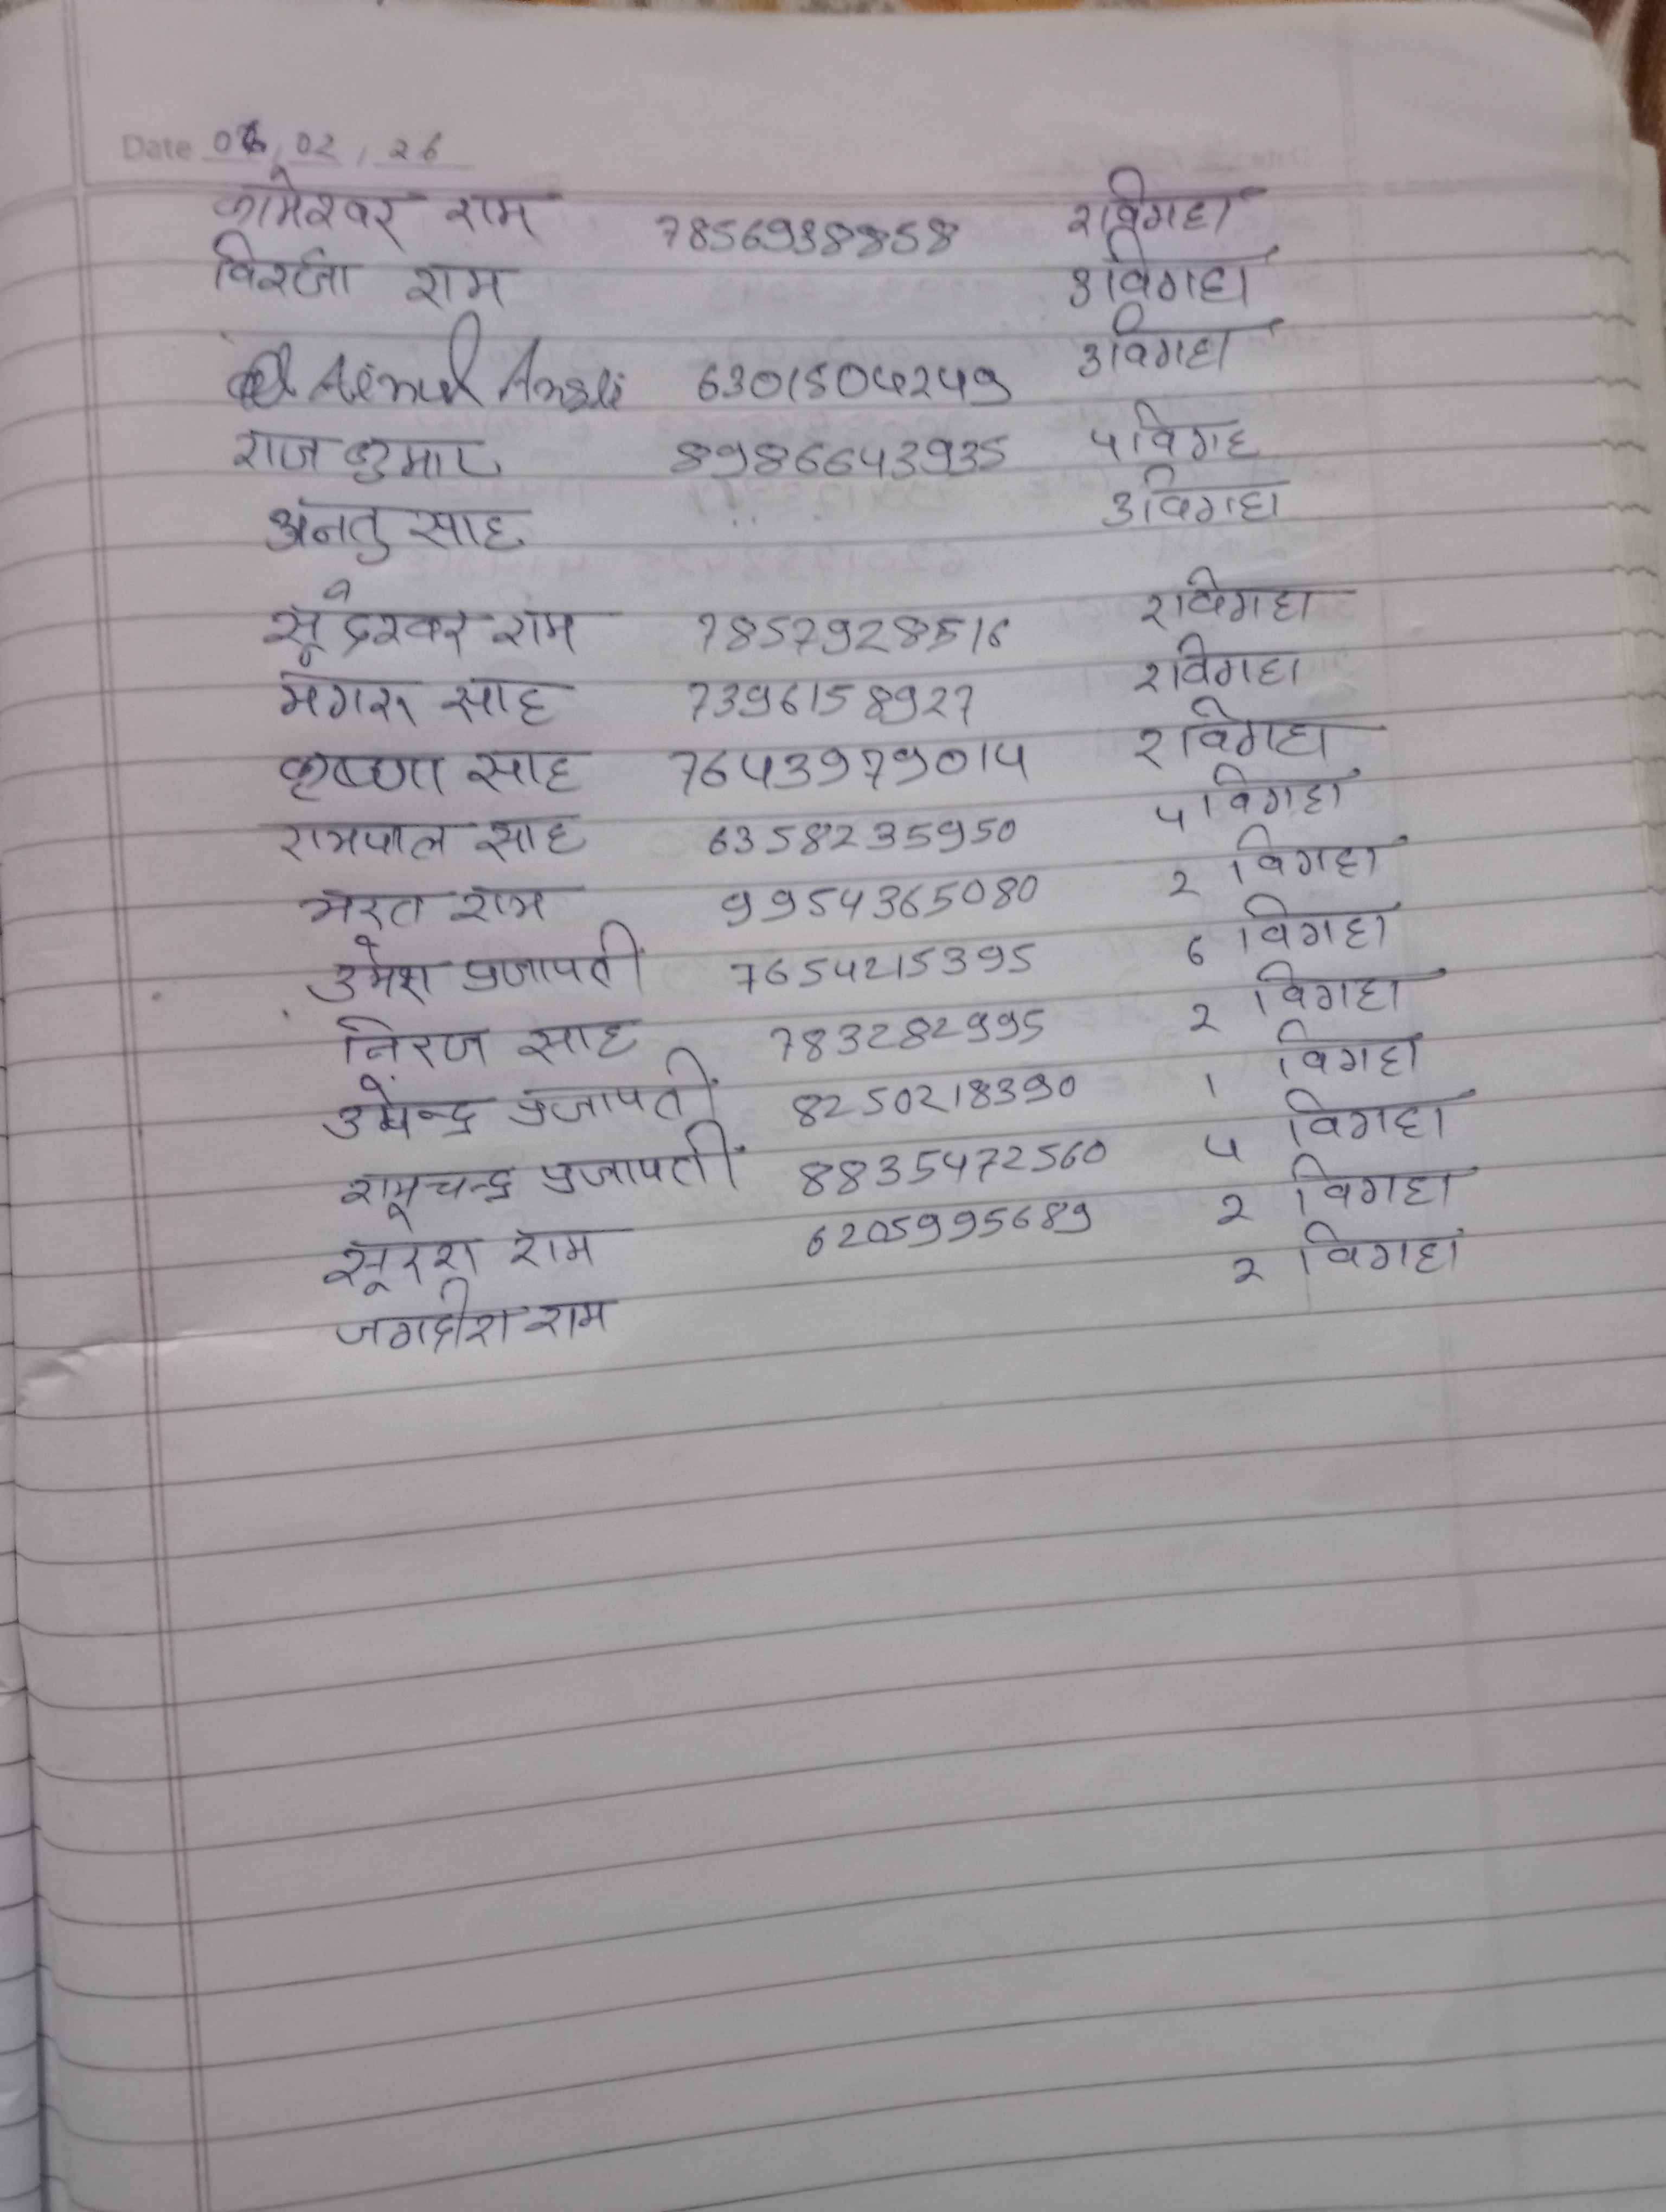 Date 06, 02, 26
कामेश्वर राम 7856938858 २विगहा
विरजा राम ३विगहा
Ainul Ansli 6301504249 ३विगहा
राज कुमार 8986643935 ५विगह
अनतु साह ३विगहा
सूदेश्वर राम 7857928516 २विगहा
मंगरु साह 7396158927 २विगहा
कृष्णा साह 7643979014 २विगहा
रामपाल साह 6358235950 ५विगहा
भरत राम 9954365080 २ विगहा
उमेश प्रजापती 7654215395 6 विगहा
निरज साह 783282995 २ विगहा
उपेन्द्र प्रजापती 8250218390 1 विगहा
रामचन्द्र प्रजापती 8835472560 ५ विगहा
सूरेश राम 6205995689 २ विगहा
जगदीश राम २ विगहा